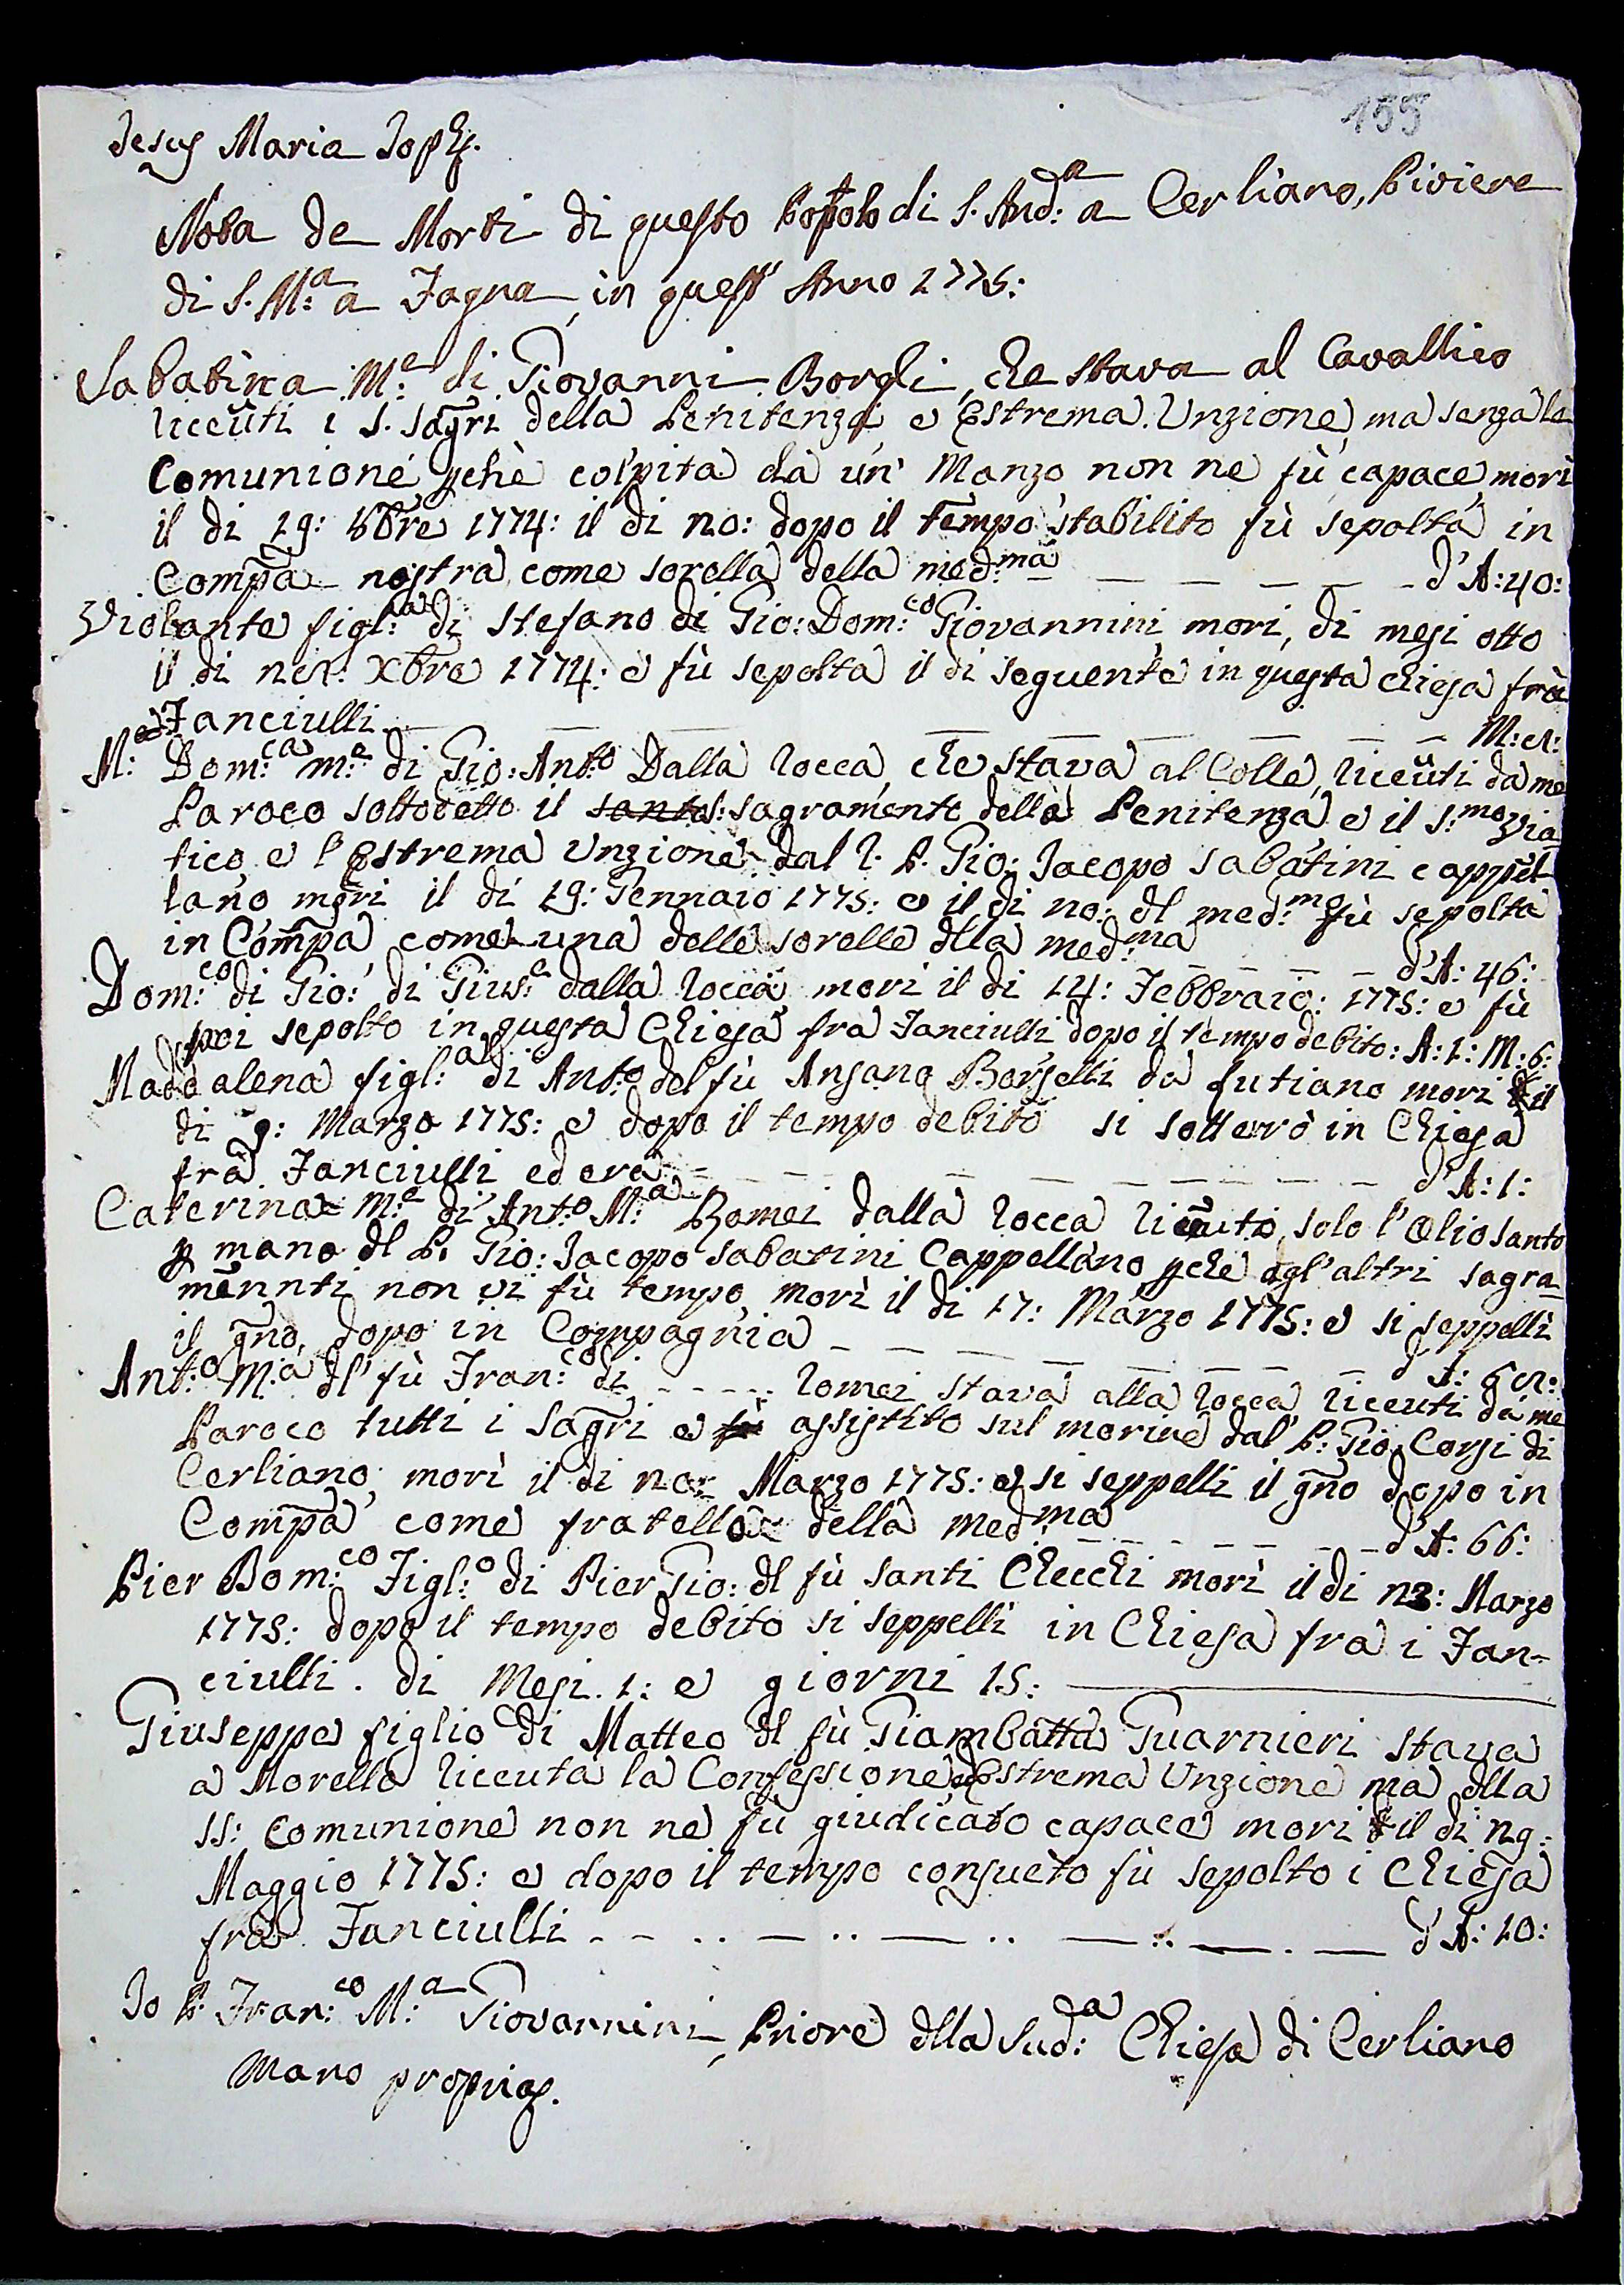 155
Jesus Maria Joph.
Nota de Morti di questo Popolo di S. And:ª a Cerliano, Piviere
di S. M:ª a Fagna, in quest' Anno 1775:
Sabatina M:e di Giovanni Borgli, che stava al Cavallico
riceuti i S. Sagri della Penitenza, e Estrema Unzione, ma senza la
Comunione pchè colpita da un Manzo non ne fù capace morì
il di 19: 8bre 1774: il di 20: dopo il tempo stabilito fù sepolta in
Compa nostra, come sorella della med:ma _ _ _ _ _ d'A: 40:
Violante figl:a di Stefano di Gio: Dom:co Giovannini mori, di mesi otto
il di Xbre 1774: e fù sepolta il di seguente in questa chiesa frà
Fanciulli _ _ _ _ _ _ _ M:
M:a Dom:ca m:e di Gio: Ant:o Dalla Rocca, che stava al Colle, riceuti da me
Paroco sottodetto il santo S: sagramento della Penitenza e il S:mo Via
tico, e l'Estrema Unzione dal R. P. Gio: Jacopo Sabatini cappel
lano mori il di 19: Gennaio 1775: e il di 20: dl med:mo fù sepolta
in Compa, come una delle sorelle dlla med:ma _ _ _ d'A: 46:
Dom:co di Gio: di Gius:e dalla Rocca mori il di 14: Febbraio: 1775: e fù
poi sepolto in questa Chiesa fra Fanciulli dopo il tempo debito: A: 1: M: 6:
Madalena figl:a di Ant:o del fù Ansano Borselli da Lutiano mori il
di 9: Marzo 1775: e dopo il tempo debito si sotterrò in Chiesa
fra Fanciulli ed era _ _ _ _ _ _ _ d'A: 1:
Caterina m:e di Ant:o M:a Romei dalla Rocca riceuto solo l'Olio santo
p mano dl P. Gio: Jacopo Sabatini Cappellano pchè agl'altri sagra-
mennti non vi fù tempo, morì il di 17: Marzo 1775: e si seppellì
il gno, dopo in Compagnia _ _ _ _ _ _ _ d'A:
Ant:o M:a dl' fù Fran:co di ..... Romei stava alla Rocca riceuti da me
Paroco tutti i Sagri e fù assistito sul morire dal P: Gio: Corsi di
Cerliano, morì il di 20: Marzo 1775: e si seppelli il gno dopo in
Compa come fratello della med:ma _ _ _ _ _ d'A: 66:
Pier Dom:co Figl:o di Pier Gio: dl fù Santi Checchi morì il di 23: Marzo
1775: dopo il tempo debito si seppellì in Chiesa fra i Fan-
ciulli. di Mesi. 1: e giorni 15:
Giuseppe figlio di Matteo dl fù Giambatta Guarnieri stava
a Morello riceuta la Confessione, e Estrema Unzione ma dlla
SS: Comunione non ne fù giudicato capace mori il di 29:
Maggio 1775: e dopo il tempo consueto fù sepolto i Chiesa
fra Fanciulli - - .. — .. — .. — . — d'A: 10:
Io P: Fran:co M:a Giovannini, Priore dlla Sud:a Chiesa di Cerliano
Mano propria.